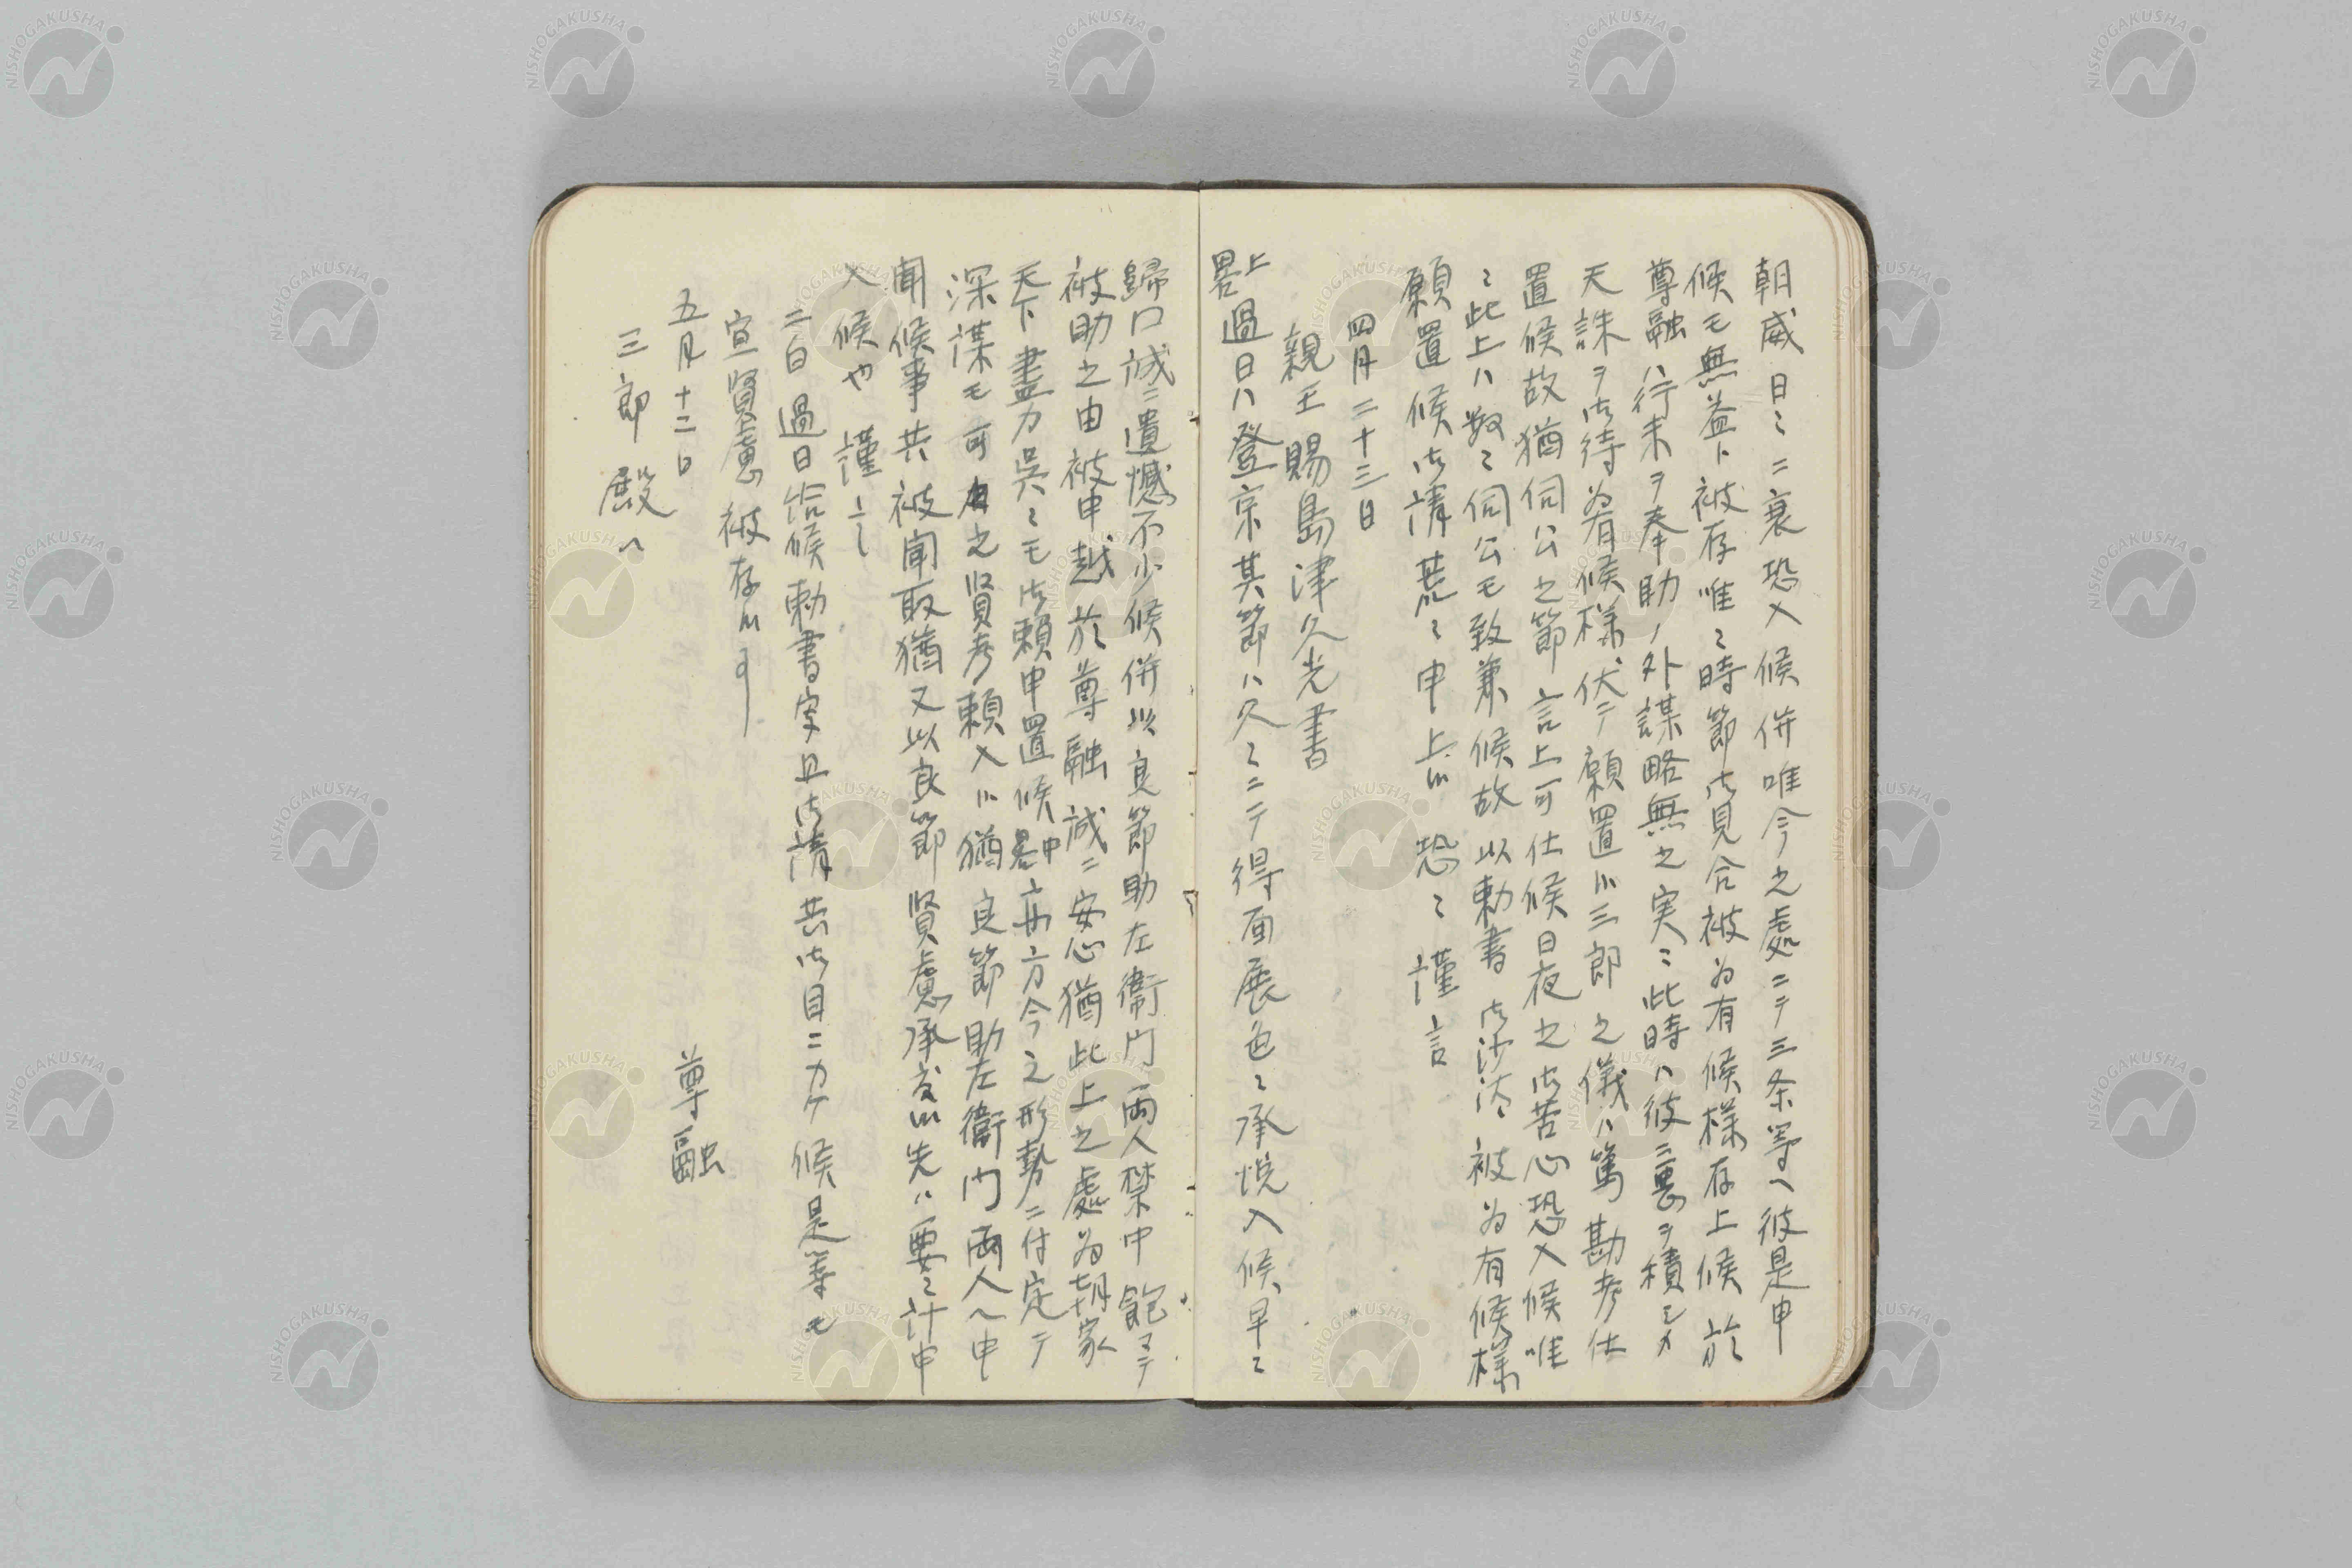 朝威日〻ニ衰恐入候併唯今之處ニテ三条等ヘ彼是申
候モ無益ト被存唯〻時節御見合被為有候様存上候於
尊融ハ行末ヲ奉助ノ外謀略無之実〻此時ハ彼三悪ヲ積シメ
天誅ヲ御待為有候様伏テ願置候三郎之儀ハ篤勘考仕
置候故猶伺公之節言上可仕候日夜之御苦心恐入候唯
〻此上ハ数〻伺公モ致兼候故以勅書御沙汰被為有候様
願置候御請荒〻申上候 恐〻謹言
四月二十三日
親王賜島津久光書
上略過日ハ登京其節ハ久〻ニテ得面展色〻承悦入候早〻
歸口誠ニ遺憾不少候併以良節助左衛門両人禁中飽マテ
被助之由被申越於尊融誠ニ安心猶此上之處為朝家
天下盡力呉〻モ御頼申置候中略京方今之形勢ニ付定テ
深謀モ可有之賢考頼入候猶良節助左衛門両人ヘ申
聞候事共被聞取猶又以良節賢慮承度候先ハ要〻計申
入候也 謹言
二白過日給候勅書字且御請共御目ニカケ候是等モ
宜賢慮被存候可
五月十二日 尊融
三郎殿ヘ
NISHOGAKUSHA